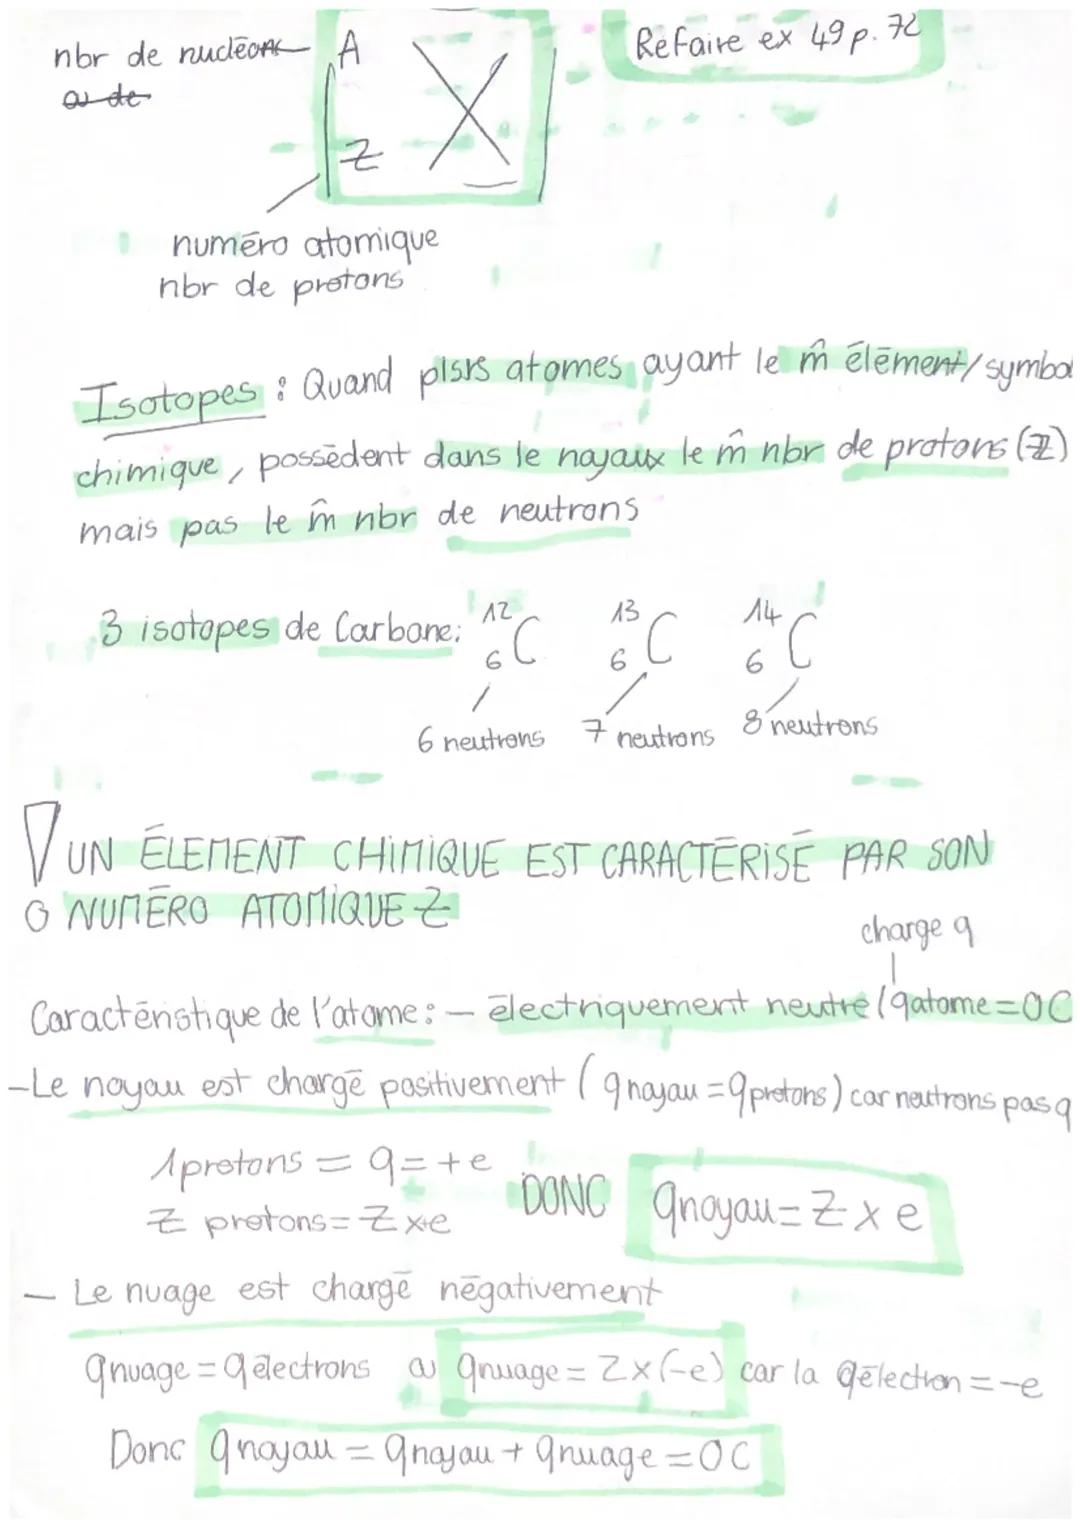 nbr de nucléons A X
ou de
Z
Refaire ex 49 p. 72
numéro atomique
nbr de protons
Isotopes : Quand plsrs atomes ayant le m̂ élément/symbol
chimique, possèdent dans le noyaux le m̂ nbr de protons (Z)
mais pas le m̂ nbr de neutrons
3 isotopes de Carbone: ¹²₆C ¹³₆C ¹⁴₆C
6 neutrons 7 neutrons 8 neutrons
! UN ÉLEMENT CHIMIQUE EST CARACTÉRISÉ PAR SON
NUMÉRO ATOMIQUE Z
charge q
Caractéristique de l'atome : - électriquement neutre (qatome = 0C
- Le noyau est chargé positivement (qnoyau = qprotons) car neutrons pas q
1 protons = q = +e
Z protons = Z x e
DONC qnoyau = Z x e
- Le nuage est chargé négativement
qnuage = qélectrons ou qnuage = Z x (-e) car la qélectron = -e
Donc qnoyau = qnoyau + qnuage = 0C